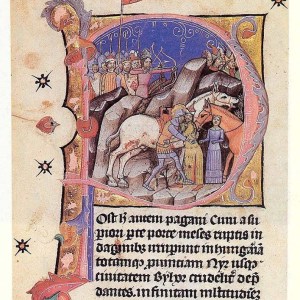 Ost h autem pagani Cum a su
piori pte porte meses ruptis in
dagĩnibus irripunt in hungaria
totamq; puinciam Nyr usq;
civitatem Byhor crudelit depō
dantes. infinitam multitudinē